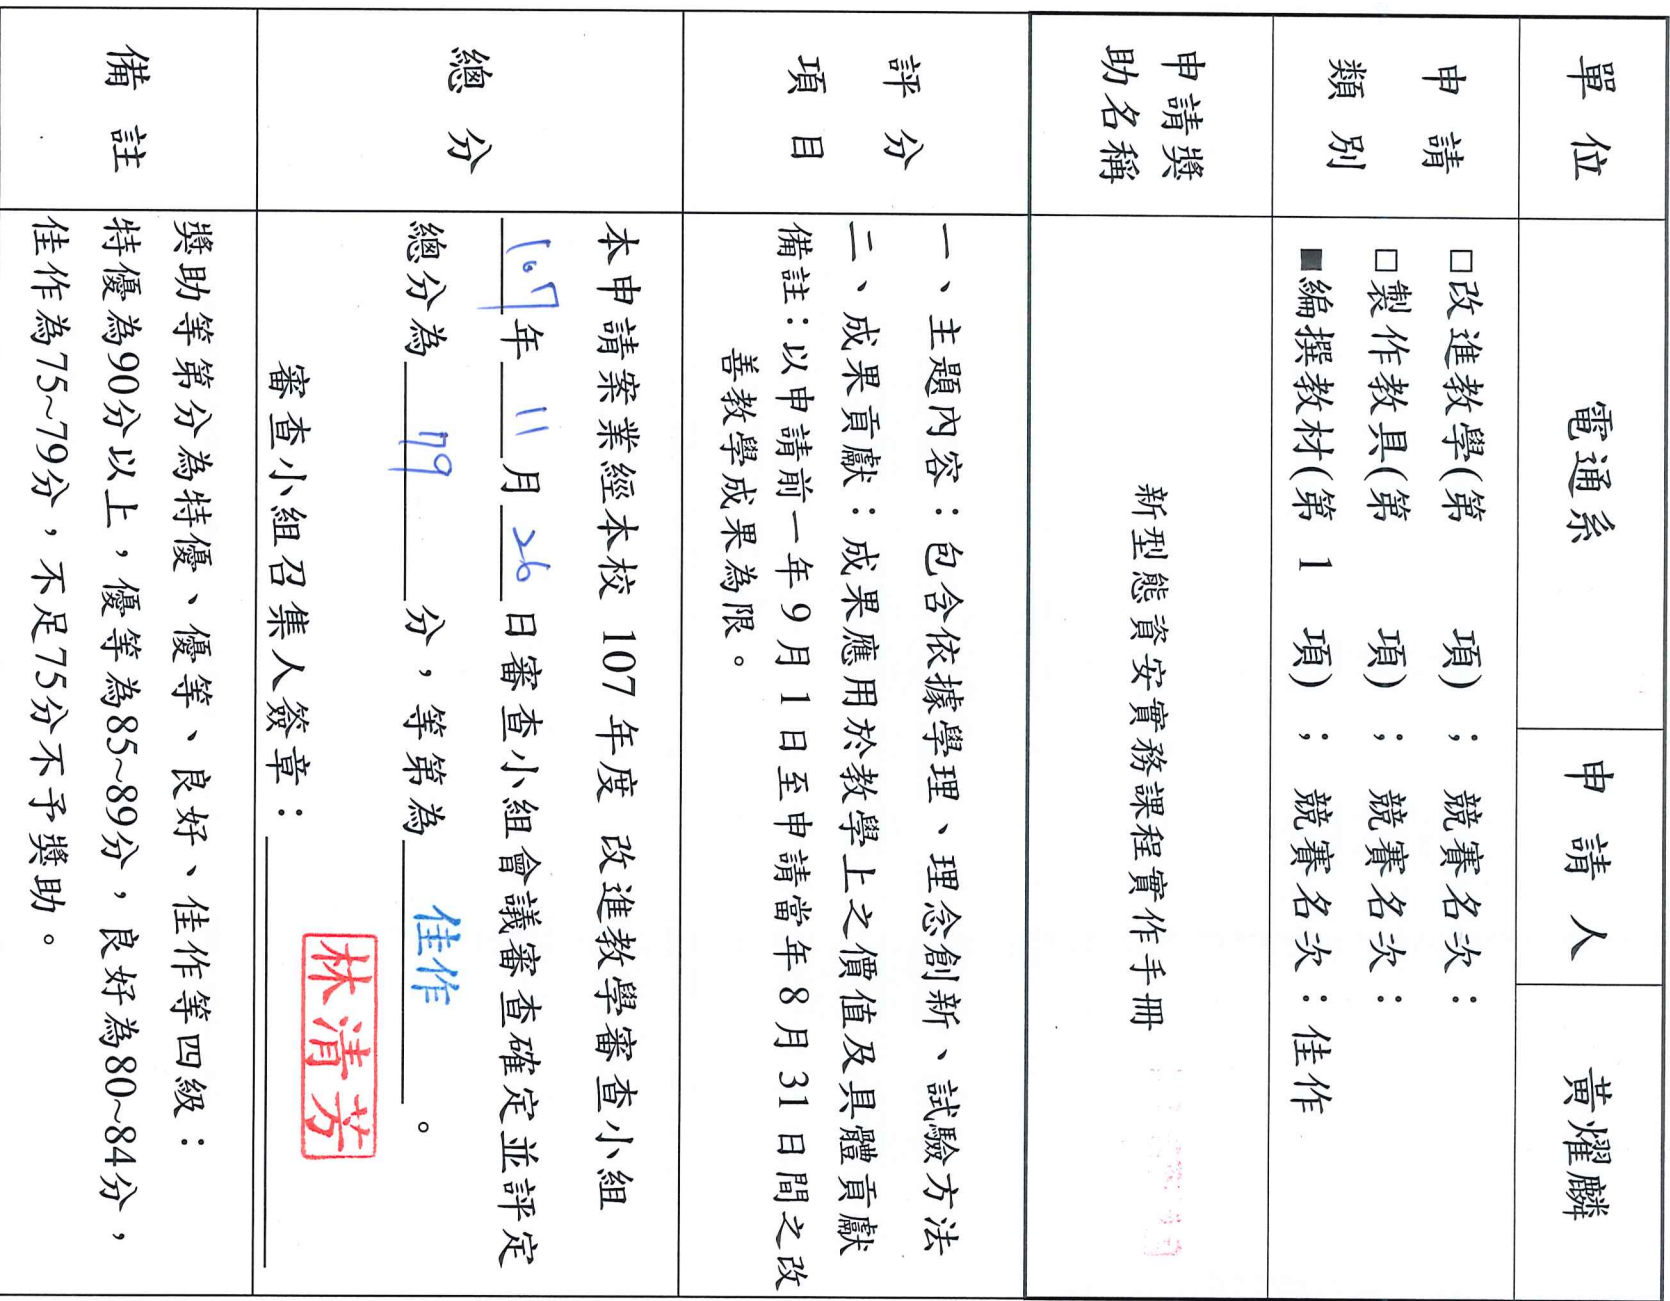 單位 電通系 申請人 黃耀麟
申請
類別
□改進教學(第 項)；競賽名次：
□製作教具(第 項)；競賽名次：
■編撰教材(第 1 項)；競賽名次：佳作
申請獎
助名稱
新型態資安實務課程實作手冊
評分
項目
一、主題內容：包含依據學理、理念創新、試驗方法
二、成果貢獻：成果應用於教學上之價值及具體貢獻
備註：以申請前一年9月1日至申請當年8月31日間之改
善教學成果為限。
總分
本申請案業經本校 107年度 改進教學審查小組
107年11月26日審查小組會議審查確定並評定
總分為 79 分，等第為 佳作 。
審查小組召集人簽章：
林清芳
備註
獎助等第分為特優、優等、良好、佳作等四級：
特優為90分以上，優等為85~89分，良好為80~84分，
佳作為75~79分，不足75分不予獎助。